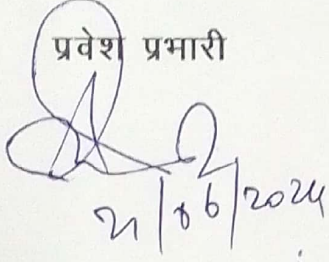 प्रवेश प्रभारी
21/06/2024